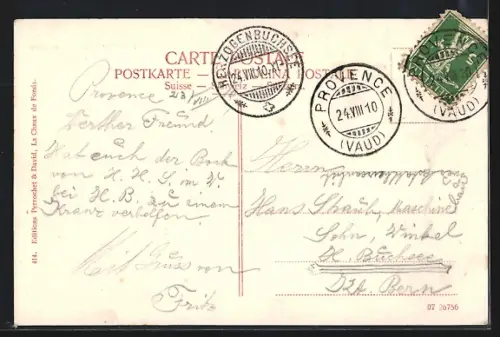 CARTE POSTALE
POSTKARTE — CARTOLINA POSTALE
Suisse
HERZOGENBUCHSEE
24.VIII.10
PROVENCE
24.VIII.10
(VAUD)
PROVENCE
(VAUD)
Provence
Werther Freund
Hat euch der Bock
von H. H. S. im
bei H. B. zu einem
Kranz verholfen
Mit Gruss von
Fritz
Herrn
Hans Schaub, Maschine
Sohn, Winkel
H. Buchsee
Kt. Bern
414. Editions Perrochet & David, La Chaux de Fonds.
07 26756